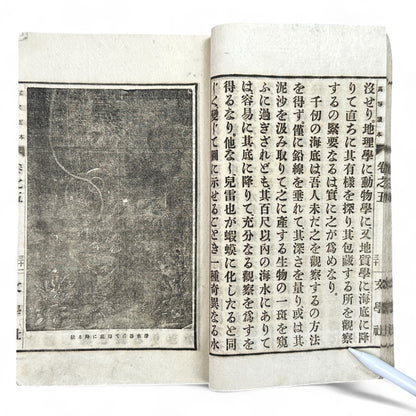 高等讀本 卷之五
文學社
沒せり、地理學に動物學に又地質學に海底に降
りて直ちに其有樣を探り其包藏する所を觀察
するの緊要なるは實に之が爲めなり、
千仞の海底は吾人未だ之を觀察するの方法
を得ず僅に鉛線を垂れて其深さを量り或は其
泥沙を汲み取りて之に產する生物の一斑を窺
ふに過ぎされども其百尺以内の海水にありて
は容易に其底に降りて充分なる觀察を爲すを
得るなり、他なし兒雷也が蝦蟆に化したると同
じく變じて圖に示せるごとき一種奇異なる水
卷之五
文學社